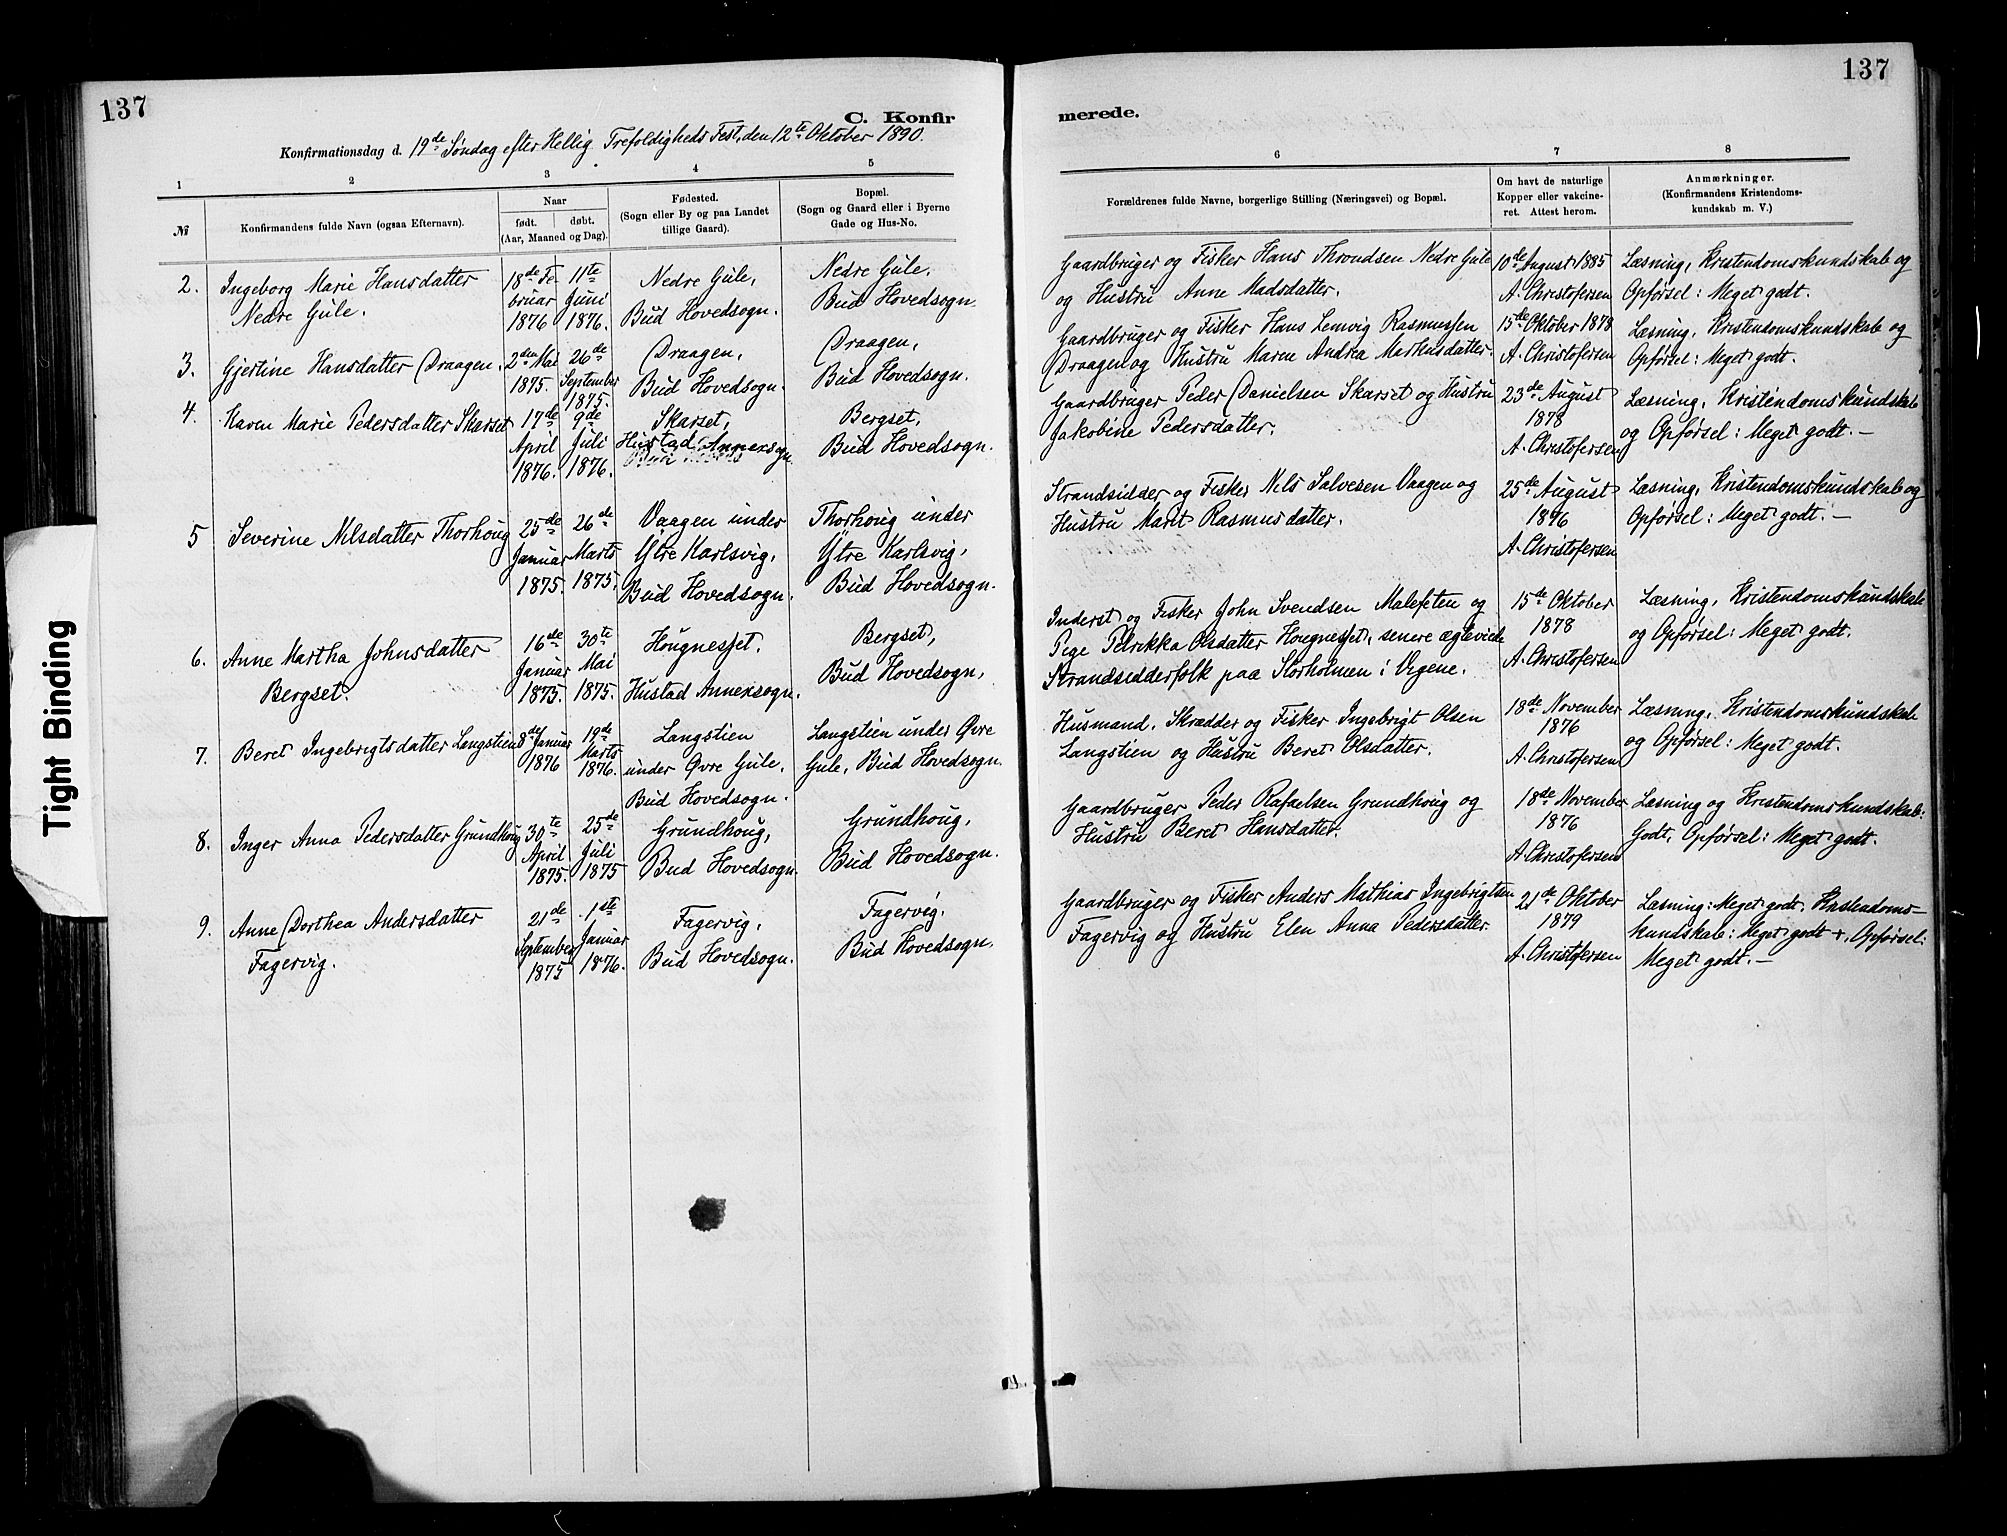 137
137
C. Konfir
merede.
Konfirmationsdag d. 19de Søndag efter Hellig Trefoldigheds Fest, den 12te Oktober 1890.
1
2
3
4
5
6
7
8
№
Konfirmandens fulde Navn (ogsaa Efternavn).
Naar
født.
døbt.
(Aar, Maaned og Dag).
Fødested.
(Sogn eller By og paa Landet
tillige Gaard).
Bopæl.
(Sogn og Gaard eller i Byerne
Gade og Hus-No.
Forældrenes fulde Navne, borgerlige Stilling (Næringsvei) og Bopæl.
Om havt de naturlige
Kopper eller vakcine-
ret. Attest herom.
Anmærkninger.
(Konfirmandens Kristendoms-
kundskab m. V.)
2.
Ingeborg Marie Hansdatter
Nedre Gule.
18de Fe
bruar
1876
11te
Juni
1876.
Nedre Gule,
Bud Hovedsogn.
Nedre Gule.
Bud Hovedsogn.
Gaardbruger og Fisker Hans Throndsen Nedre Gule
og Hustru Anne Madsdatter.
10de August 1885
A. Christofersen
Læsning, Kristendomskundskab og
Opførsel: Meget godt.
3.
Gjertine Hansdatter Draagen.
2den Mai
1875.
26de
September
1875.
Draagen,
Bud Hovedsogn.
Draagen,
Bud Hovedsogn.
Gaardbruger og Fisker Hans Lemvig Rasmussen
Draagen og Hustru Maren Andrea Markusdatter.
15de Oktober 1878
A. Christofersen
Læsning, Kristendomskundskab og
Opførsel: Meget godt.
4.
Karen Marie Pedersdatter Skarset
17de
April
1876.
9de
Juli
1876.
Skarset,
Hustad Annexsogn.
Bergset,
Bud Hovedsogn.
Gaardbruger Peder Danielsen Skarset og Hustru
Jakobine Pedersdatter.
23de August
1878
A. Christofersen
Læsning, Kristendomskundskab
og Opførsel: Meget godt. —
5
Severine Nilsdatter Thorhoug
25de
Januar
1875.
26de
Marts
1875.
Vaagen under
Ytre Karlsvig,
Bud Hovedsogn.
Thorhoug under
Ytre Karlsvig,
Bud Hovedsogn.
Strandsidder og Fisker Nils Salvesen Vaagen og
Hustru Marit Rasmusdatter.
25de August
1876
A. Christofersen
Læsning, Kristendomskundskab og
Opførsel: Meget godt. —
6.
Anne Martha Johnsdatter
Bergset.
16de
Januar
1875.
30te
Mai
1875.
Hougnesjet.
Hustad Annexsogn.
Bergset,
Bud Hovedsogn,
Inderst og Fisker John Svendsen Malefeten og
Pige Petrikka Olsdatter Hougnesjet, senere ægteviede
Strandsidderfolk paa Storholmen i Vegene.
15de Oktober
1878
A. Christofersen
Læsning, Kristendomskundskab
og Opførsel: Meget godt.
7.
Beret Ingebrigtsdatter Langstien
8de Januar
1876
19de
Marts
1876.
Langstien
under Øvre Gule,
Bud Hovedsogn.
Langstien under Øvre
Gule, Bud Hovedsogn.
Husmand, Skrædder og Fisker Ingebrigt Olsen
Langstien og Hustru Beret Olsdatter.
18de November
1876
A. Christofersen
Læsning, Kristendomskundskab
og Opførsel: Meget godt.
8.
Inger Anna Pedersdatter Grundhoug
30te
April
1875.
25de
Juli
1875
Grundhoug,
Bud Hovedsogn.
Grundhoug,
Bud Hovedsogn.
Gaardbruger Peder Rafaelsen Grundhoug og
Hustru Beret Hansdatter.
18de November
1876
A. Christofersen
Læsning og Kristendomskundskab:
Godt, Opførsel: Meget godt.
9.
Anne Dorthea Andersdatter
Fagervig.
21de
September
1875
1ste
Januar
1876.
Fagervig,
Bud Hovedsogn.
Fagervig.
Bud Hovedsogn.
Gaardbruger og Fisker Anders Mathias Ingebrigtsen
Fagervig og Hustru Elen Anna Pedersdatter.
21de Oktober
1879
A. Christofersen
Læsning: Meget godt, Kristendoms-
kundskab: Meget godt +, Opførsel:
Meget godt. —
Tight Binding